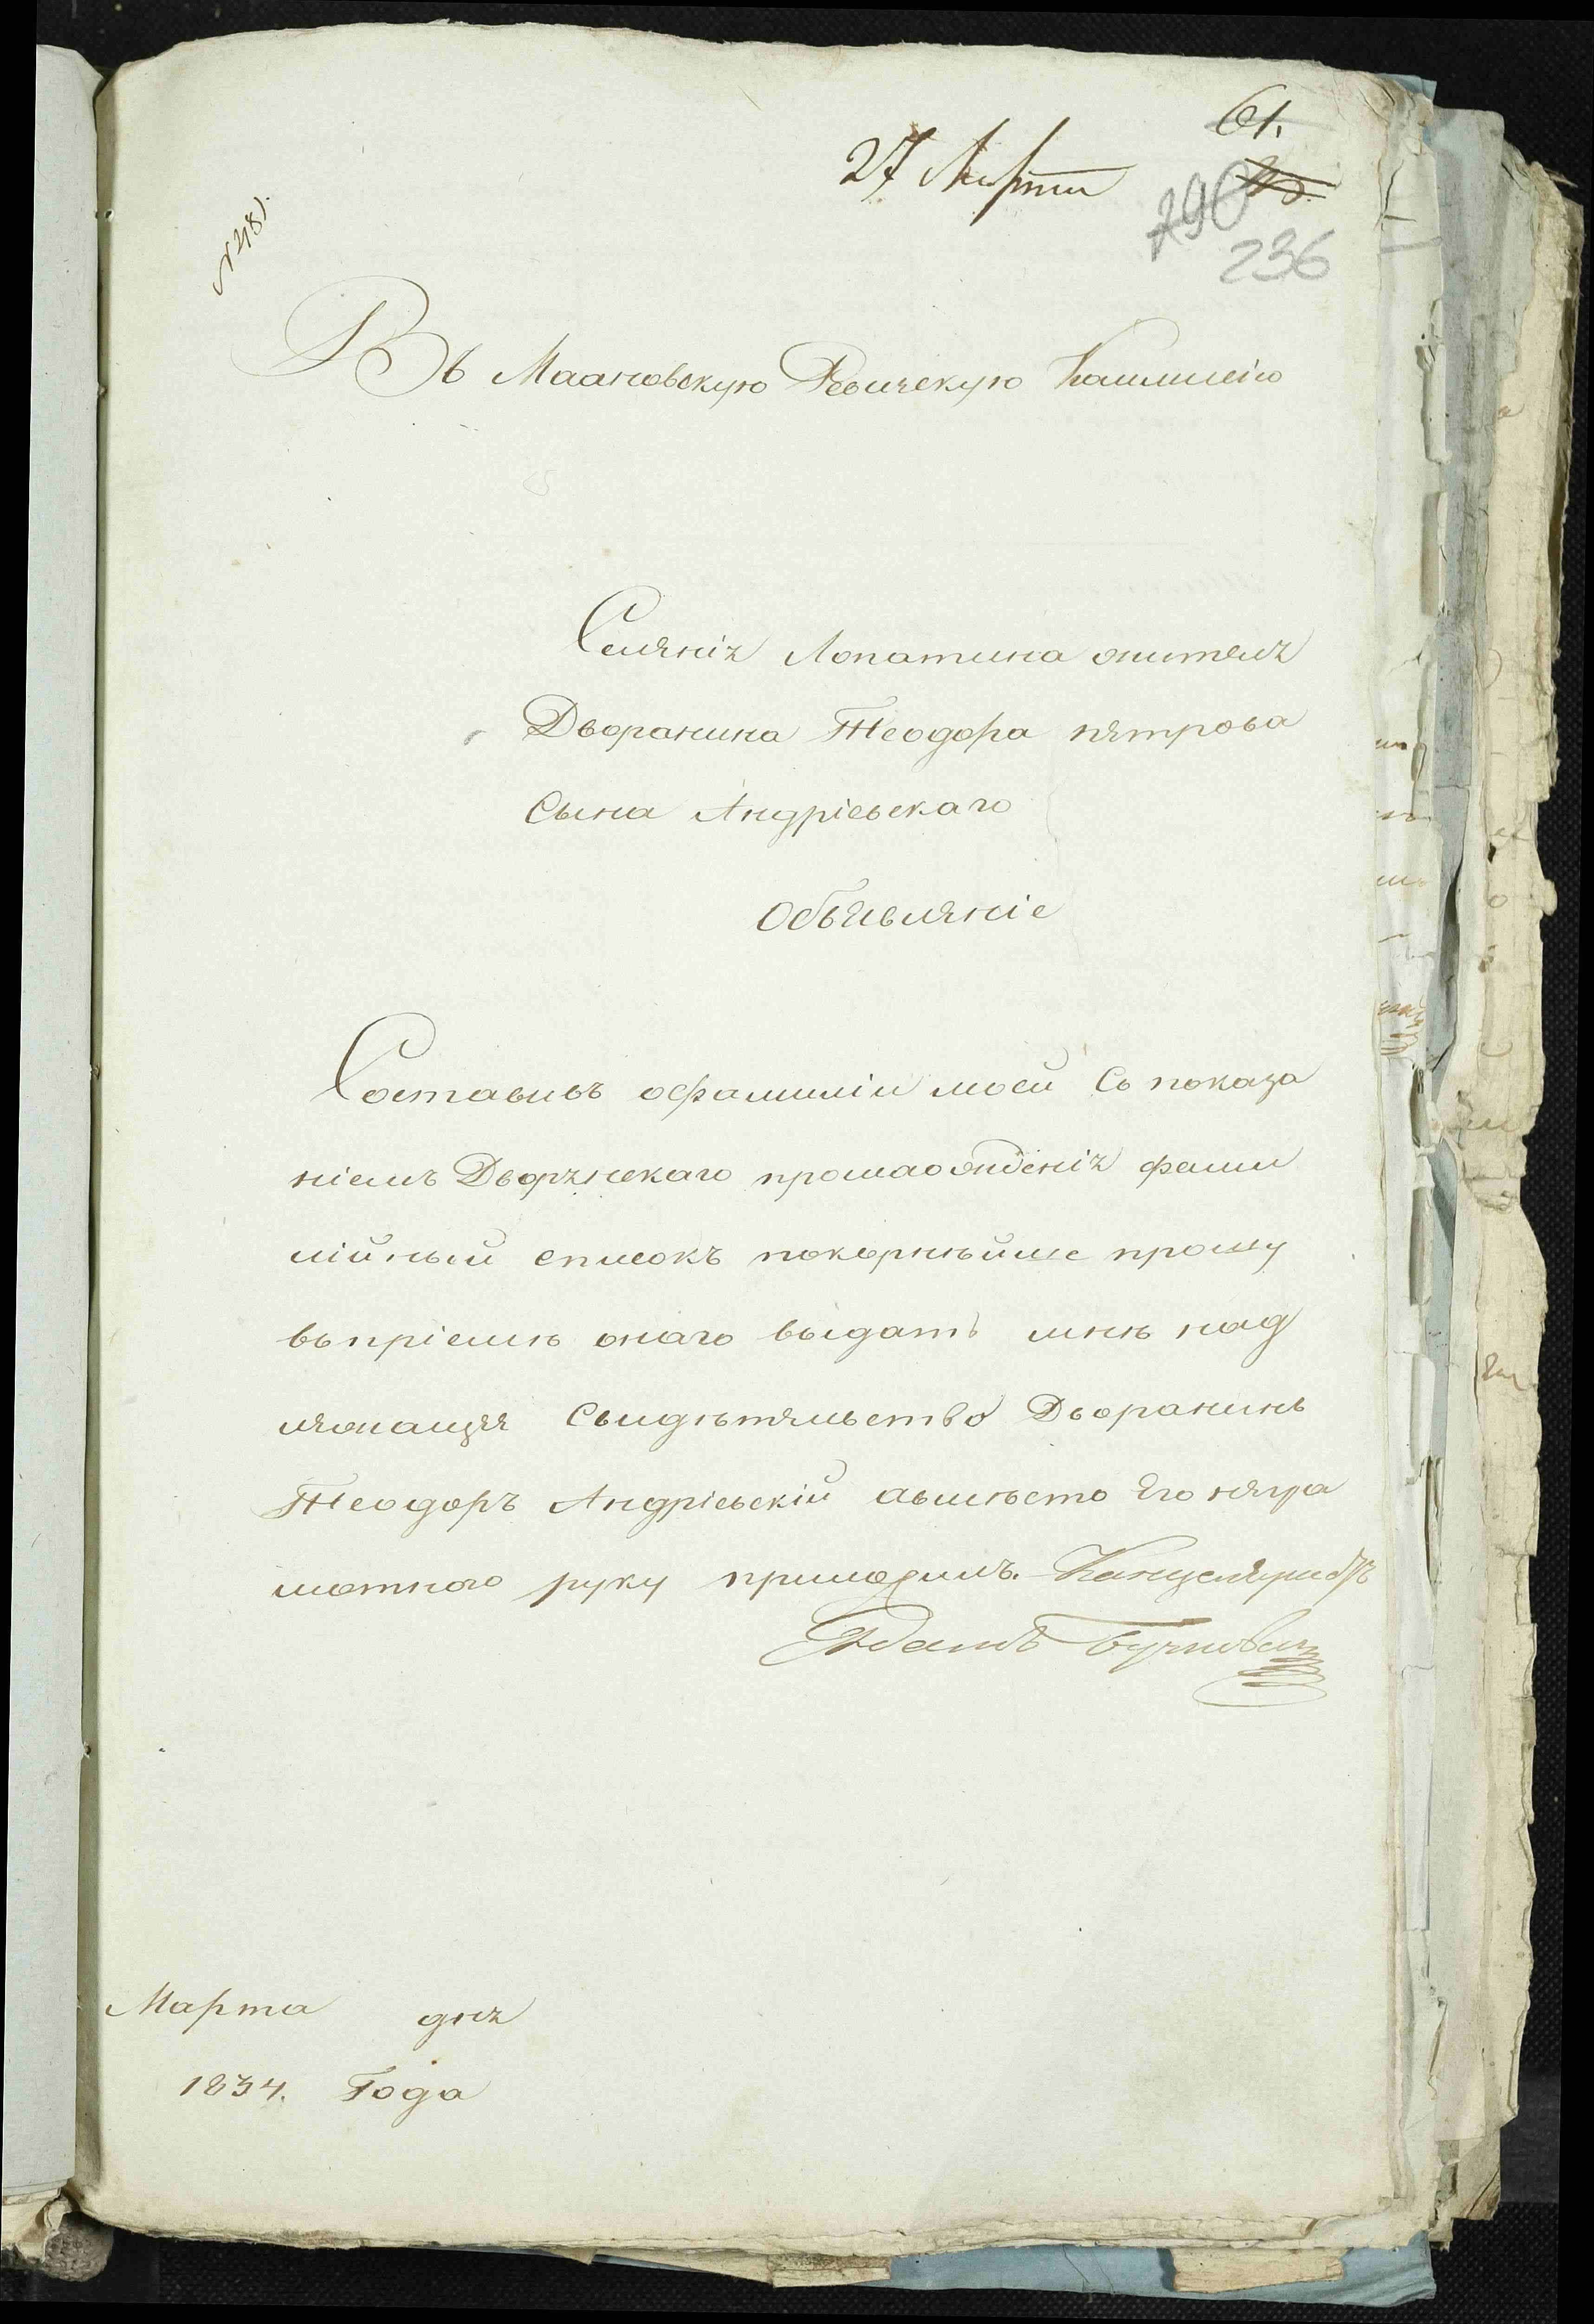 61.
27 Марта
790
236
Въ Махновскую Ревизскую Коммисію
Селенія Лопатина жителя
Дворанина Теодора петрова
Сына Андріевскаго
Объявленіе
Составивъ офамиліи моей съ показа
ніемъ Дворянскаго происхожденія фами
лійный списокъ покорнѣйше прошу
въ пріемѣ онаго выдать мнѣ над
лежащее свидѣтельство Дворанинъ
Теодоръ Андріевскій авмѣсто Его негра
мотного руку приложилъ. Канцеляристъ
Адамъ
Марта дня
1834. Года